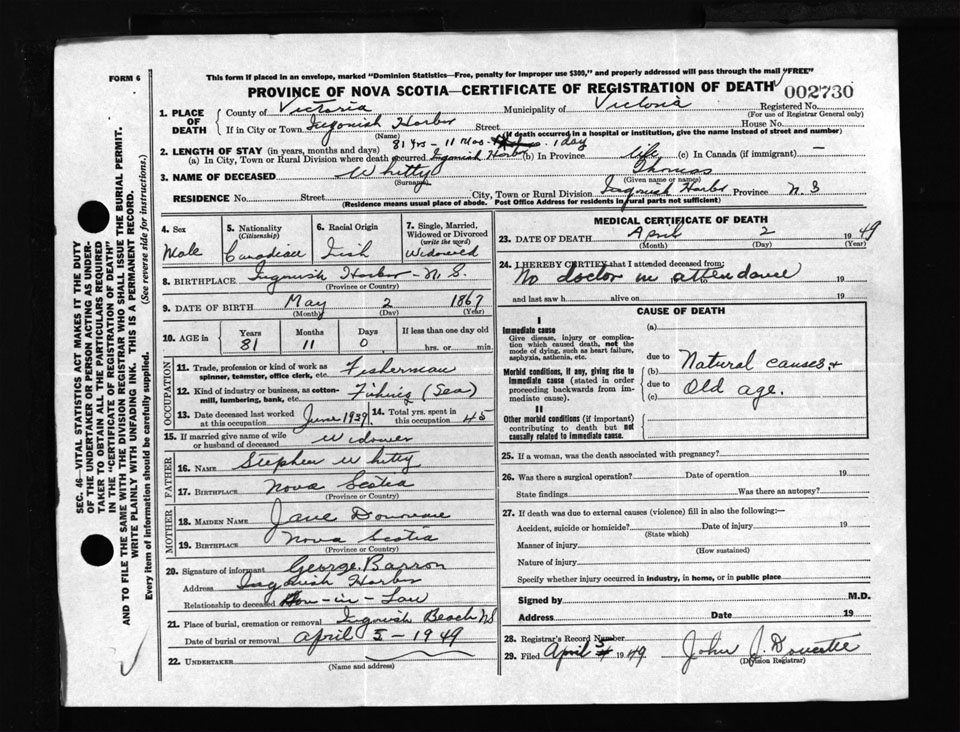 FORM 6
This form if placed in an envelope, marked "Dominion Statistics—Free, penalty for improper use $300," and properly addressed will pass through the mail "FREE"
PROVINCE OF NOVA SCOTIA—CERTIFICATE OF REGISTRATION OF DEATH 002730
1. PLACE OF DEATH County of Victoria Municipality of Victoria Registered No.
(For use of Registrar General only)
If in City or Town Ingonish Harbor Street House No.
(Name) (If death occurred in a hospital or institution, give the name instead of street and number)
2. LENGTH OF STAY (in years, months and days) 81 yrs - 11 mos. 1 day
(a) In City, Town or Rural Division where death occurred Ingonish Harbor (b) In Province life (c) In Canada (if immigrant) —
3. NAME OF DECEASED Whitty Thomas
(Surname) (Given name or names)
RESIDENCE No. Street City, Town or Rural Division Ingonish Harbor Province N.S
(Residence means usual place of abode. Post Office Address for residents in rural parts not sufficient)
4. Sex Male
5. Nationality (Citizenship) Canadian
6. Racial Origin Irish
7. Single, Married, Widowed or Divorced (write the word) Widowed
8. BIRTHPLACE Ingonish Harbor - N.S.
(Province or Country)
9. DATE OF BIRTH May 2 1867
(Month) (Day) (Year)
10. AGE in Years Months Days If less than one day old
81 11 0 hrs. or min.
OCCUPATION
11. Trade, profession or kind of work as spinner, teamster, office clerk, etc. Fisherman
12. Kind of industry or business, as cotton-mill, lumbering, bank, etc. Fishing (Sea)
13. Date deceased last worked at this occupation June 1939 14. Total yrs. spent in this occupation 45
15. If married give name of wife or husband of deceased Widower
FATHER
16. NAME Stephen Whitty
17. BIRTHPLACE Nova Scotia
(Province or Country)
MOTHER
18. MAIDEN NAME Jane Donovan
19. BIRTHPLACE Nova Scotia
(Province or Country)
20. Signature of informant George Barron
Address Ingonish Harbor
Relationship to deceased Son-in-Law
21. Place of burial, cremation or removal Ingonish Beach NS
Date of burial or removal April 5 - 1949
22. UNDERTAKER
(Name and address)
MEDICAL CERTIFICATE OF DEATH
23. DATE OF DEATH April 2 1949
(Month) (Day) (Year)
24. I HEREBY CERTIFY that I attended deceased from:
No doctor in attendance 19
and last saw h alive on 19
CAUSE OF DEATH
I
Immediate cause (a)
Give disease, injury or complication which caused death, not the mode of dying, such as heart failure, asphyxia, asthenia, etc.
due to Natural causes +
Morbid conditions, if any, giving rise to immediate cause (stated in order proceeding backwards from immediate cause).
(b)
due to Old age.
(c)
II
Other morbid conditions (if important) contributing to death but not causally related to immediate cause.
25. If a woman, was the death associated with pregnancy?
26. Was there a surgical operation? Date of operation 19
State findings Was there an autopsy?
27. If death was due to external causes (violence) fill in also the following:—
Accident, suicide or homicide? Date of injury 19
(State which)
Manner of injury
(How sustained)
Nature of injury
Specify whether injury occurred in industry, in home, or in public place
Signed by M.D.
Address Date 19
28. Registrar's Record Number
29. Filed April 1949 John J. Doucette
(Division Registrar)
SEC. 46—VITAL STATISTICS ACT MAKES IT THE DUTY
OF THE UNDERTAKER OR PERSON ACTING AS UNDER-
TAKER TO OBTAIN ALL THE PARTICULARS REQUIRED
IN THE "CERTIFICATE OF REGISTRATION OF DEATH"
AND TO FILE THE SAME WITH THE DIVISION REGISTRAR WHO SHALL ISSUE THE BURIAL PERMIT.
WRITE PLAINLY WITH UNFADING INK. THIS IS A PERMANENT RECORD.
Every item of information should be carefully supplied. (See reverse side for instructions.)